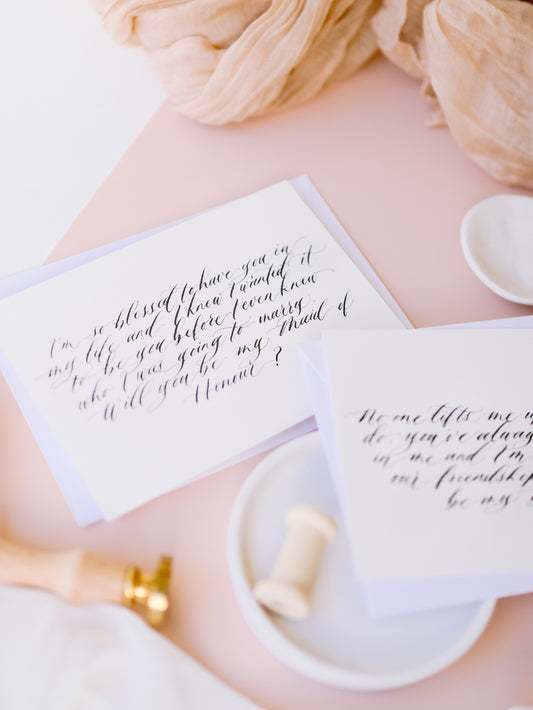 I'm so blessed to have you in
my life and I knew I wanted it
to be you before I even knew
who I was going to marry.
Will you be my Maid of
Honour?
No one lifts me
do. you've always
in me and I'm
our friendship
be my